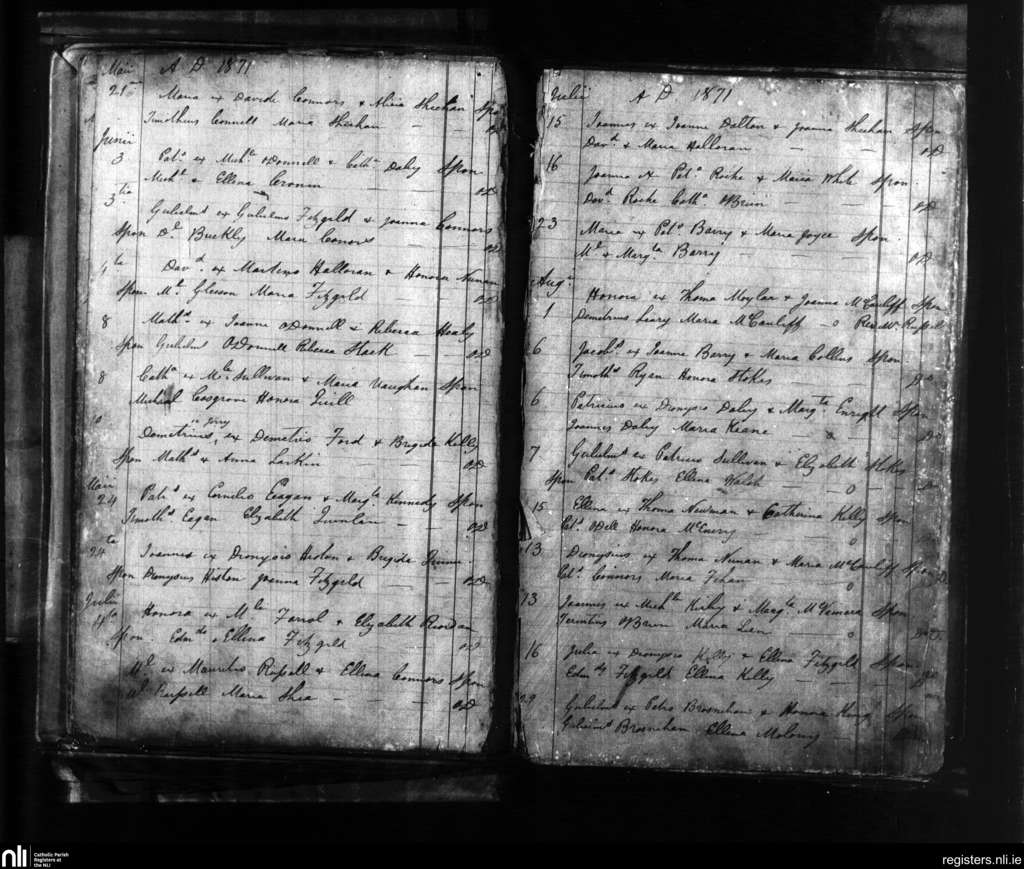 Maii A D 1871
21 Maria ex Davide Connors & Alicia Sheehan Spon
Timotheus Connell Maria Sheehan — — OD
Junii
3 Pat. ex Mich. ODonnell & Cath. Daly Spon
Mich. & Ellena Cronin — — OD
3tia Gulielm ex Gulielmo Fitzgrld & Joanna Connors
Spon D. Buckly Maria Connors — OD
4ta Dav. ex Martino Halloran & Honora Nunan
Spon M. Gleeson Maria Fitzgrld — OD
8 Math. ex Joanne ODonnell & Rebecca Healy
Spon Gulielm ODonnell Rebecca — OD
8 Cath. ex M. Sullivan & Maria Vaughan Spon
Michael Cosgrove Honora
Demetrius ex Demetrio Ford & Brigida Kelly
Spon Math. & Anna Larkin OD
Maii
24 Pat. ex Cornelio Eagan & Marg. Kennedy Spon
Timoth. Eagan Elizabeth Quinlan — OD
24ta Joannes ex Dionysio Histon & Brigida
Spon Dionysius Histon Joanna Fitzgrld — OD
Julii
4ta Honora ex M. Farrol & Elizabeth Riordan
Spon Edm. & Ellena Fitzgrld OD
W. ex Mauritio Russell & Ellena Connors Spon
W. Russell Maria Shea — — OD
Julii A D 1871
15 Joannes ex Joanne Dalton & Joanna Sheehan Spon
Dav. & Maria Halloran — — OD
16 Joanna Pat. Roche & Maria White Spon
Dav. Roche Cath. OBrien — — OD
23 Maria ex Pat. Barry & Maria Joyce Spon
M. & Marg. Barry — — OD
Aug
1 Honora ex Thoma Moylan & Joanna McCauliff Spon
Demetrius Leary Maria McCauliff — o Rev. Mr Russell
6 Jacob. ex Joanne Barry & Maria Collins Spon
Timoth. Ryan Honora Stokes
6 Patricius ex Dionysio Daly & Marg. Enright Spon
Joannes Daly Maria Keane — o —
7 Gulielm ex Patricio Sullivan & Elizabeth Stokes
Spon Pat. Stokes Ellena Walsh — o —
15 Ellena ex Thoma Newman & Catherina Kelly Spon
Pat. ODell Honora McEnery o
13 Dionysius ex Thoma Nunan & Maria McCauliff Spon
Pat. Connors Maria o
13 Joannes ex Mich. Kirby & Marg. McNamara Spon
OBrien Maria o
16 Julia ex Dionysio Kelly & Ellena Fitzgrld Spon
Edm. Fitzgrld Ellena Kelly — —
29 Gulielm ex Petro Brosnehan & Honora Spon
Gulielm Brosnehan Ellena Molony —
nli
Catholic Parish
Registers at
the NLI
registers.nli.ie